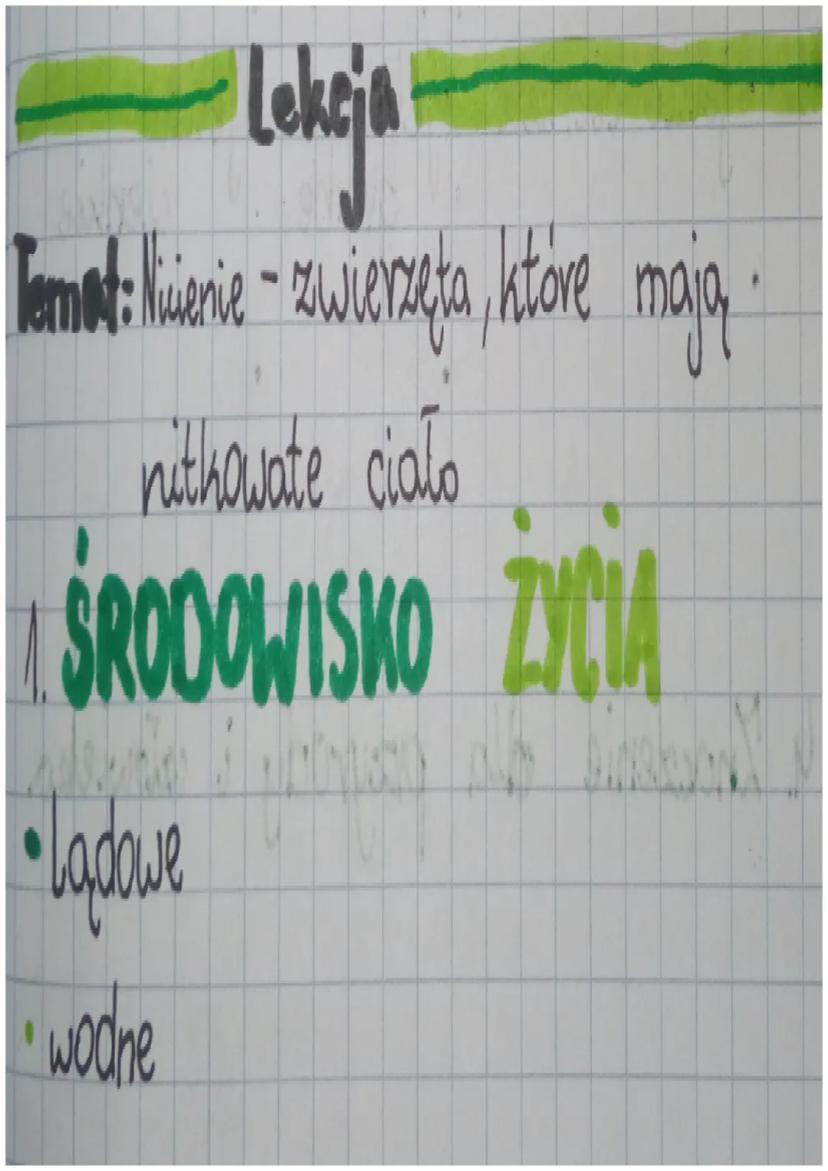 Lekcja
Temat: Nicienie - zwierzęta, które mają
nitkowate ciało
1. ŚRODOWISKO ŻYCIA
• Lądowe
• wodne